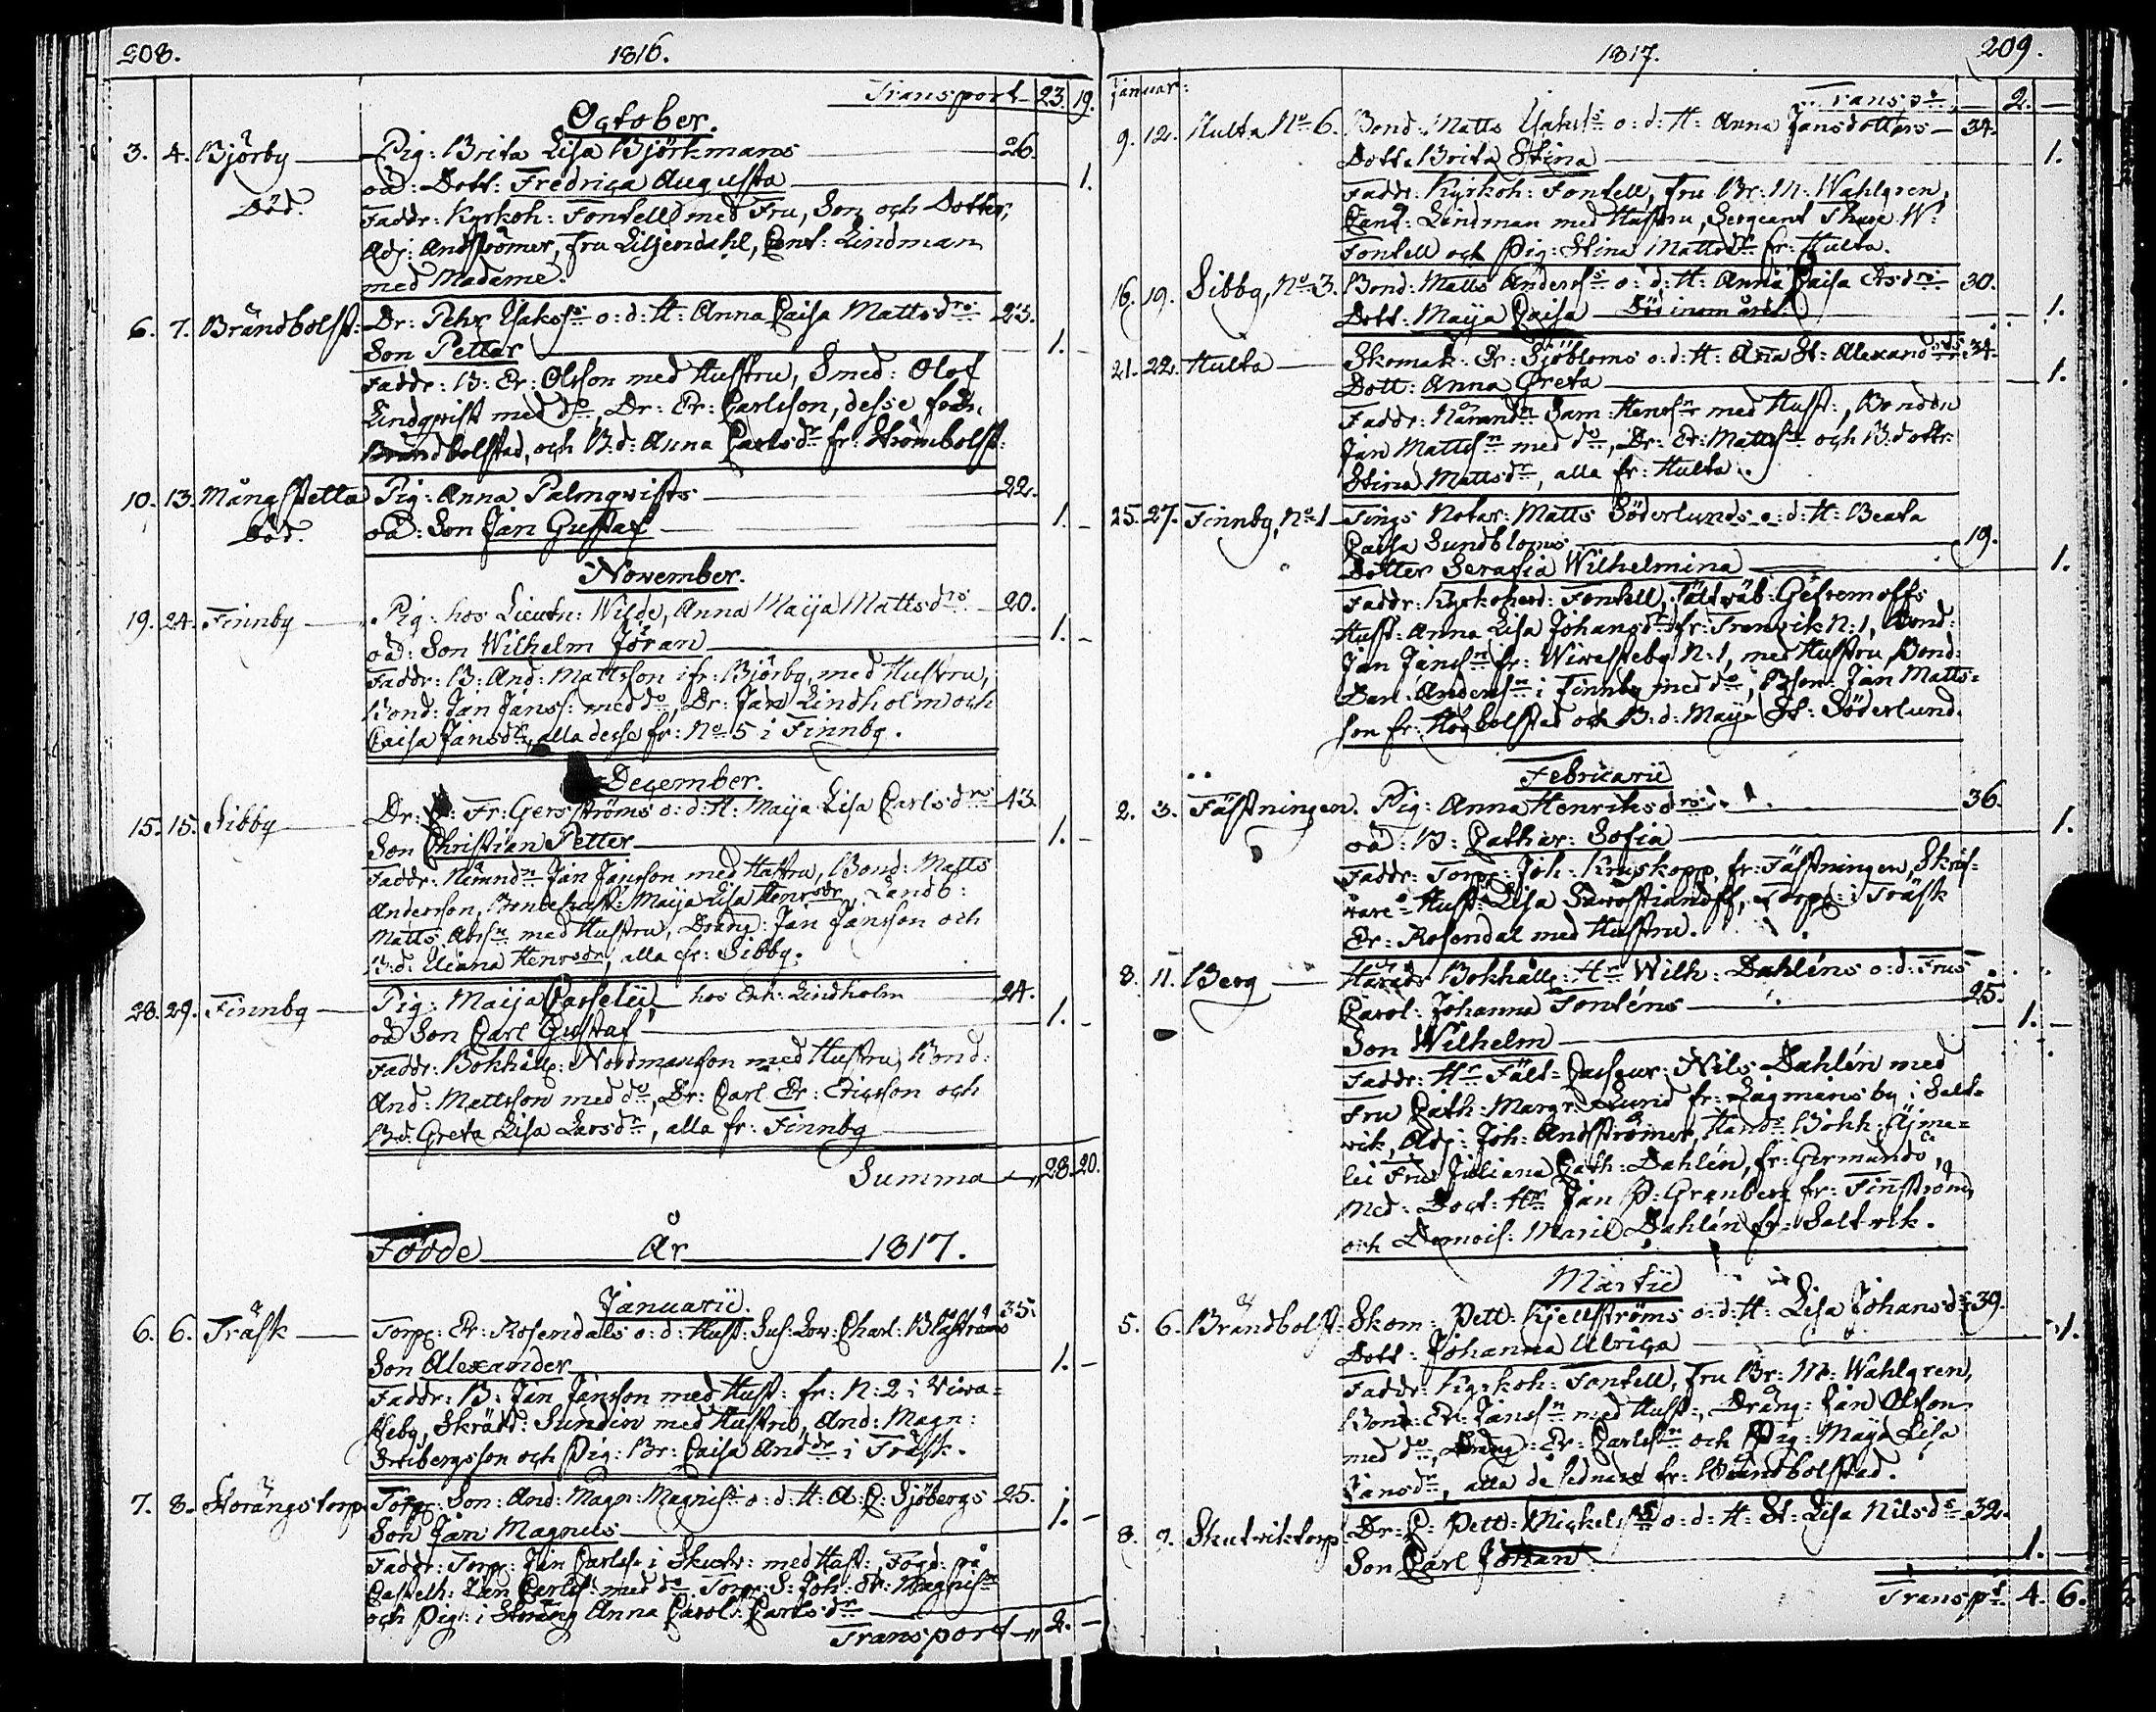 208. 1816.
Transport 23. 19.
October.
3. 4. Björby Pig: Brita Lisa Björkmans 26.
Död. oä: Dott: Fredrica Augusta 1.
Faddr: Kyrkoh: Fontell med Fru, Son och Dotter,
Adj: Andströmer, Fru Liljendahl, Cant: Lindman
med Madame.
6. 7. Brändbolst: Dr: Pehr Isakss: o: d: H: Anna Caisa Mattsdrs 23.
Son Petter 1. -
Faddr: B: Er: Olsson med Hustru, Smed: Olof
Lindqvist med do, Dr: Er: Carlsson, desse från
Brändbolstad, och B: d: Anna Carlsdr fr: Strömbolst:
10. 13. Mångstetta Pig: Anna Palmqvists 22.
Död. oä: Son Jan Gustaf 1. -
November.
19. 24. Finnby Pig: hos Lieutn: Wilde, Anna Maija Mattsdrs 20.
oä: Son Wilhelm Jöran 1. -
Faddr: B: And: Mattsson ifr: Björby, med Hustru,
Bond: Jan Janss: med do, Dr: Jan Lindholm och
Caisa Jansdr, alla desse fr: No 5 i Finnby.
December.
15. 15. Sibby Dr: Fr: Gersströms o: d: H: Maija Lisa Carlsdrs 43.
Son Christian Petter 1. -
Faddr: Nämndn Jan Jansson med Hustru, Bond: Matts
Andersson, Bondehust: Maija Lisa Henrsdr, Landb:
Matts Abrsn med Hustru, Dräng: Jan Jansson och
B: d: Eleana Henrsdr, alla fr: Sibby.
28. 29. Finnby Pig: Maija Casselii hos Enk: Lindholm 24.
oä Son Carl Gustaf 1. -
Faddr: Bokhåll: Nordmansson med Hustru, Bond:
And: Mattsson med do, Dr: Carl Er: Ericsson och
B:d: Greta Lisa Larsdr, alla fr: Finnby
Summa 28. 20.
Födde År 1817.
Januarii.
6. 6. Träsk Torp: Er: Rosendals o: d: Hust: Sus: Lov: Charl: Blåströms 35.
Son Alexander 1. -
Faddr: B: Jan Jansson med Hust: fr: N: 2 i Viva=
steby, Skrädd: Sundin med Hustru, And: Magn:
Ortbergsson och Pig: Br: Caisa Anddr i Träsk.
7. 8. Storängstorp Torp: Son: And: Magn: Magniss: o: d: H: A: C: Sjöbergs 25.
Son Jan Magnus 1. -
Faddr: Torp: Jan Carlss: i Skutv: med Hust:, Fogd: på
Castelh: Jan Carlss: med do Torp: S: Joh: Er: Magnisn
och Pig: i Storäng Anna Carol: Carlsdr
Transport 2. -
1817. 209.
Januar: Transpt 2. -
9. 12. Hulta No 6. Bond: Matts Isakss o: d: H: Anna Jansdotters 34.
Dott: Brita Stina 1.
Faddr: Kyrkoh: Fontell, Fru Br: M: Wahlgren,
Cant: Lindman med Hustru, Sergeant Thure W:
Fontell och Pig: Stina Mattsdr fr: Hulta.
16. 19. Sibby, No 3. Bond: Matts Anderss o: d: H: Anna Caisa Ersdrs 30.
Dott: Maija Caisa Död inom året. 1.
21. 22. Hulta Skomak: Er: Sjöbloms o: d: H: Aña St: Alexandsds 34.
Dott: Anna Greta 1.
Faddr: Nämndn Sam: Henrsn med Hust:, Bonden
Jan Mattsn med do, Dr: Er: Mattsn och B:dottr
Stina Mattsdr, alla fr: Hulta.
25. 27. Finnby, No 1 Tings Notar: Matts Söderlunds o: d: H: Beata
Caisa Sundbloms 19.
Dotter Serafia Wilhelmina 1.
Faddr: Kyrkoherd: Fontell, Fältväb: Gefremoffs
Hust: Anna Lisa Johansdr fr: Tranvik N: 1, Bond:
Jan Janssn fr: Wivasteby N: 1, med Hustru, Bond:
Dan: Anderssn i Finnby med do, Bson: Jan Matts=
son fr: Högbolstad och B: d: Maija St: Söderlund.
Februarii
2. 3. Fästningen. Pig: Anna Henriksdrs 36.
oä: B: Cathar: Sofia 1.
Faddr: Torp: Joh: Kruskopp, fr: Fästningen, Skrif=
vare Hust: Lisa Sarostiandoff, Torp: i Träsk
Er: Rosendal med Hustru.
8. 11. Berg Härads Bokhåll: Hr Wilh: Dahléns o: d: Frus
Carol: Johanna Fonténs 25.
Son Wilhelm 1. -
Faddr: Hr Fält= Casseur: Nils Dahlén med
Fru Cath: Margr: Lund fr: Lagmansby i Salt=
vik, Adj: Joh: Andströmer, Hands Bokh: Äjme=
lei Fru Juliana Cath: Dahlén, fr: Germundö,
Med: Doct: Hr Jan P: Granberg fr: Finström
och Demois: Marie Dahlén fr: Saltvik.
Martii
5. 6. Brändbolst: Skom: Pett: Kjellströms o: d: H: Lisa Johansds 39.
Dott: Johanna Ulrica 1.
Faddr: Kyrkoh: Fontell, Fru Br: M: Wahlgren,
Bond: Er: Janssn med Hust:, Dräng: Jan Olsson
med do, Dräng: Er: Carlssn och Pig: Maija Lisa
Jansdr, alla de sednare fr: Brändbolstad.
8. 9. Skutviktorp Dr: C: Pett: Mickelss o: d: H: St: Lisa Nilsds 32.
Son Carl Johan 1. -
Transpt 4. 6.